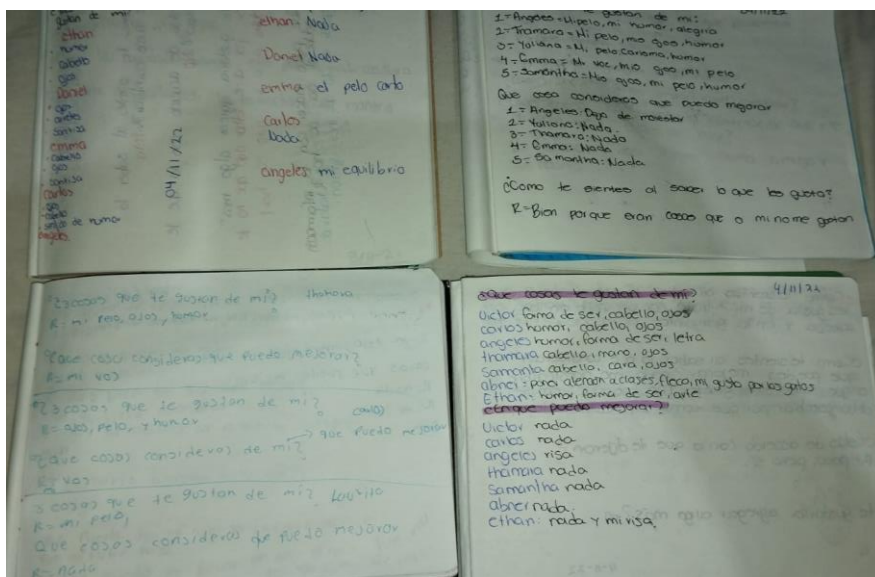 gustan de mi
ethan
humor
cabello
ojos
Daniel
ojos
cabello
sonrisa
emma
cabello
ojos
sonrisa
carlos
ojos
de humor
angeles
04/11/22
ethan: Nada
Daniel Nada
emma el pelo corto
Carlos
Nada
angeles mi equilibrio
gustan de mi:
1= Angeles= Mi pelo, mi humor, alegria
2= Thamara= Mi pelo, mis ojos, humor
3= Yuliana= Mi pelo, carisma, humor
4= Emma= Mi voz, mis ojos, mi pelo
5= Samantha= Mis ojos, mi pelo, humor
Que cosa consideras que puedo mejorar
1= Angeles: Dejo de molestar
2= Yuliana: Nada
3= Thamara: Nada
4= Emma: Nada
5= Samantha: Nada
¿Como te sientes al saber lo que les gusta?
R= Bien porque eran cosas que a mi no me gustan
¿3 cosas que te gustan de mi? thamara
R= mi pelo, ojos, humor
¿Que cosas consideras que puedo mejorar?
R= mi vos
¿3 cosas que te gustan de mi? carlos
R= ojos, pelo, y humor
¿que cosas consideras de mi? → que puedo mejorar
R= vos
3 cosas que te gustan de mi?
R= mi pelo,
Que cosas consideras que puedo mejorar
R= nada
4/11/22
¿Que cosas te gustan de mi?
Victor forma de ser, cabello, ojos
carlos humor, cabello, ojos
angeles humor, forma de ser, letra
thamara cabello, mano, ojos
Samanta cabello, cara, ojos
abner: poner atencion a clases, fleco, mi gusto por los gatos
Ethan: humor, forma de ser, arte
¿En que puedo mejorar?
Victor nada
carlos nada
angeles risa
thamara nada
Samantha nada
abner nada
ethan: nada y mi risa